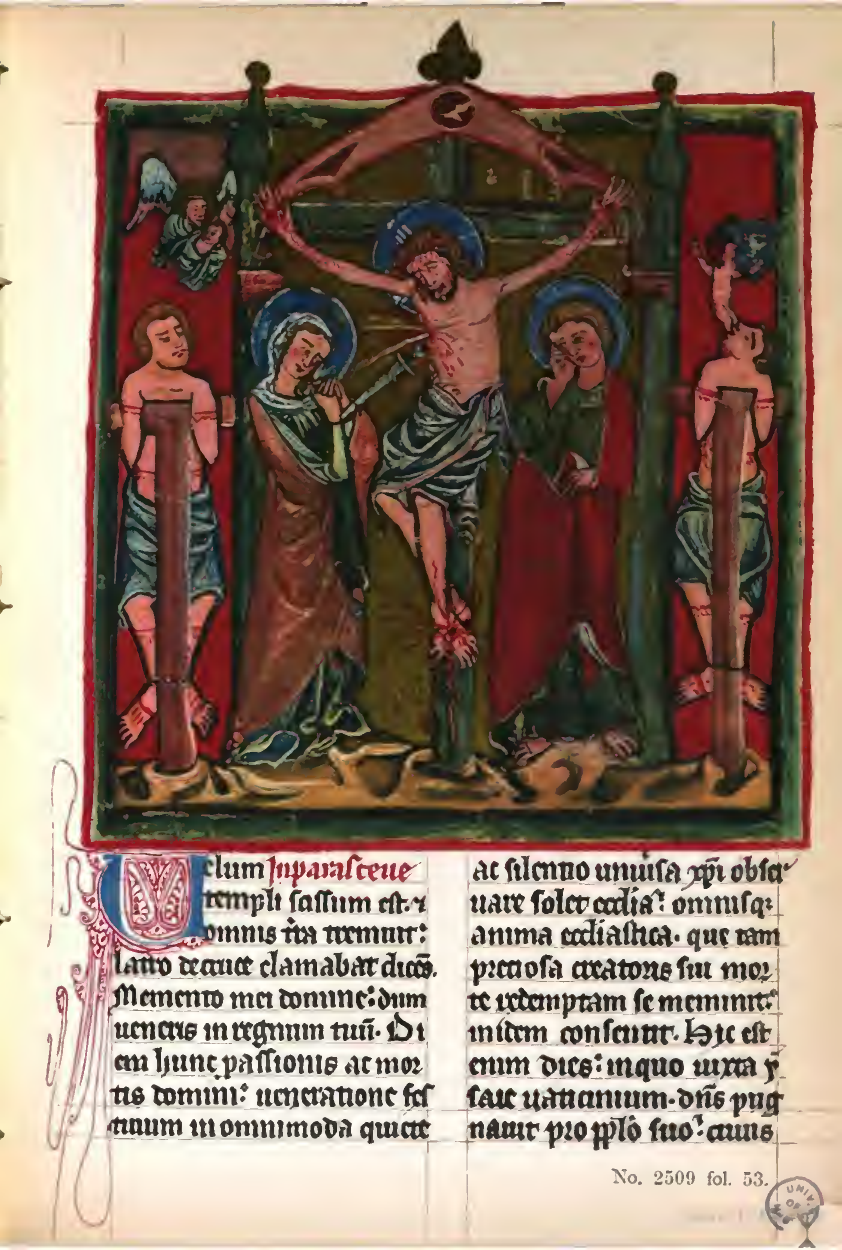 Uelum Inparasceue
templi scissum est. ⁊
omnis tr̄a tremuit:
latro de cruce clamabat dicēs.
Memento mei domine: dum
ueneris in regnum tuū. Di
em hunc passionis ac mor
tis domini: ueneratione fes
tiuum in omnimoda quiete
ac silentio uniuīsa xp̄i obser
uare solet ecclīa: omnisq:
anima eccliastica. que tam
preciosa creatoris sui mor
te redemptam se meminit:
inidem consentit. Hic est
enim dies: inquo iuxta ẏ
saie uaticinium. dn̄s pug
nauit pro pp̄lo suo: cuius
No. 2509 fol. 53.
UNIV.
OF